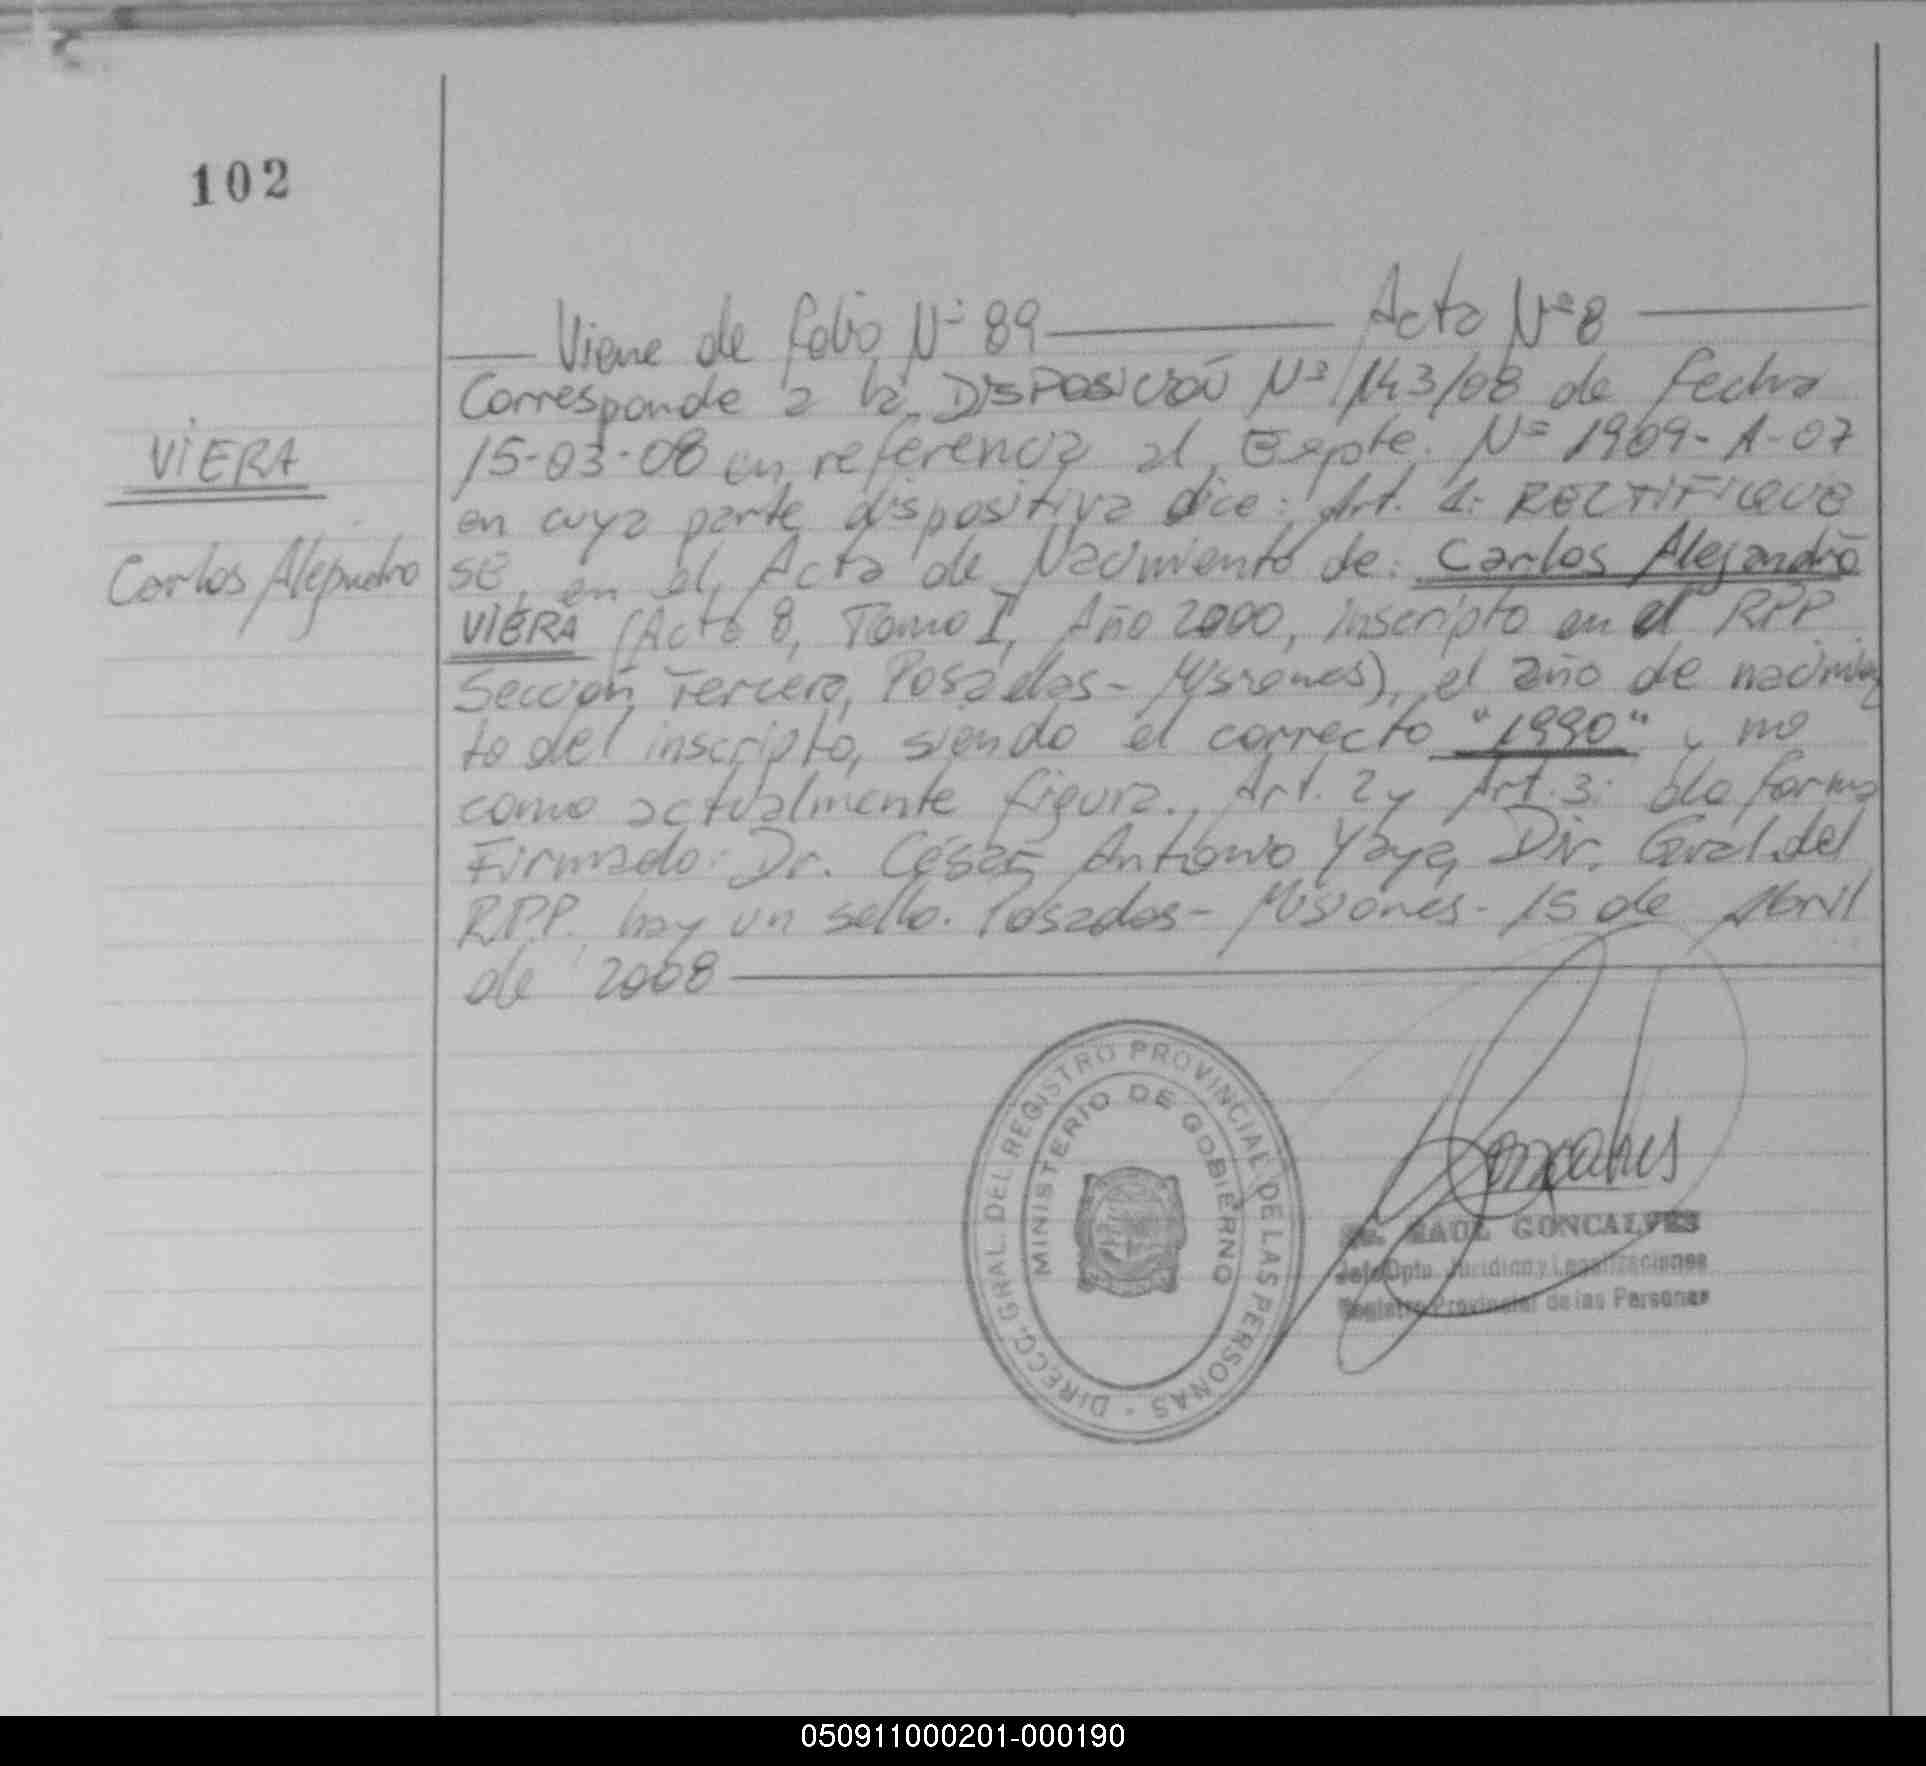 102
Viene de folio Nº 89 — Acta Nº 8 —
Corresponde a la DISPOSICIÓN Nº 143/08 de fecha
VIERA
15-03-08 en referencia al Expte. Nº 1909-A-07
en cuya parte dispositiva dice: Art. 1: RECTIFIQUE
Carlos Alejandro
SE, en el Acta de Nacimiento de: Carlos Alejandro
VIERA (Acta 8, Tomo I, Año 2000, inscripto en el RPP
Sección Tercera, Posadas - Misiones), el año de nacimien
to del inscripto, siendo el correcto "1990" y no
como actualmente figura. Art. 2 y Art. 3: de forma
Firmado: Dr. César Antonio Yaya, Dir. Gral. del
R.P.P. hay un sello. Posadas - Misiones - 15 de Abril
de 2008
DIRECC. GRAL. DEL REGISTRO PROVINCIAL DE LAS PERSONAS -
MINISTERIO DE GOBIERNO
Goncalves
RAUL GONCALVES
Jefe Dpto. Jurídico y Legalizaciones
Registro Provincial de las Personas
050911000201-000190